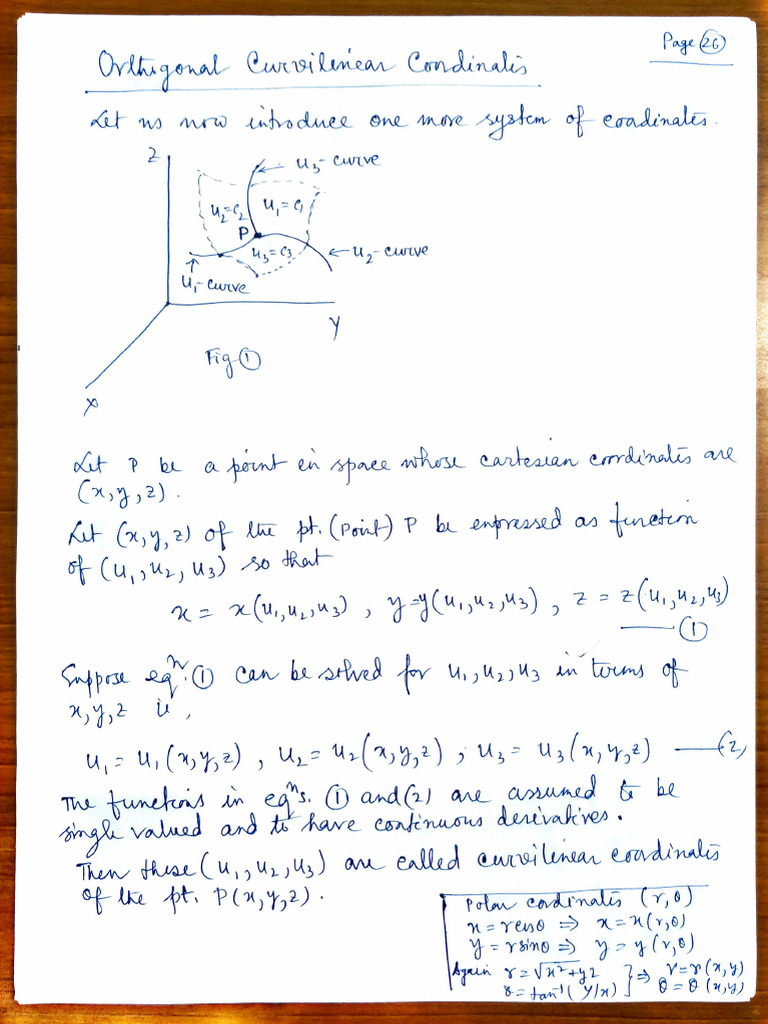 Page 26
Orthogonal Curvilinear Coordinates
Let us now introduce one more system of coordinates.
Z
u₃-curve
u₂=c₂
u₁=c₁
P
u₃=c₃
u₂-curve
u₁-curve
Y
Fig ①
X
Let P be a point in space whose cartesian coordinates are
(x,y,z).
Let (x,y,z) of the pt. (Point) P be expressed as function
of (u₁,u₂,u₃) so that
x = x(u₁,u₂,u₃) , y=y(u₁,u₂,u₃) , z = z(u₁,u₂,u₃)
—①
Suppose eqⁿ. ① can be solved for u₁,u₂,u₃ in terms of
x,y,z ie,
u₁= u₁(x,y,z) , u₂= u₂(x,y,z) , u₃= u₃(x,y,z) —(2)
The functions in eqⁿs. ① and (2) are assumed to be
single valued and to have continuous derivatives.
Then these (u₁,u₂,u₃) are called curvilinear coordinates
of the pt. P(x,y,z).
Polar coordinates (r,θ)
x=rcosθ ⇒ x=x(r,θ)
y=rsinθ ⇒ y=y(r,θ)
Again r=√x²+y2 } ⇒ r=r(x,y)
θ=tan⁻¹(y/x) θ=θ(x,y)